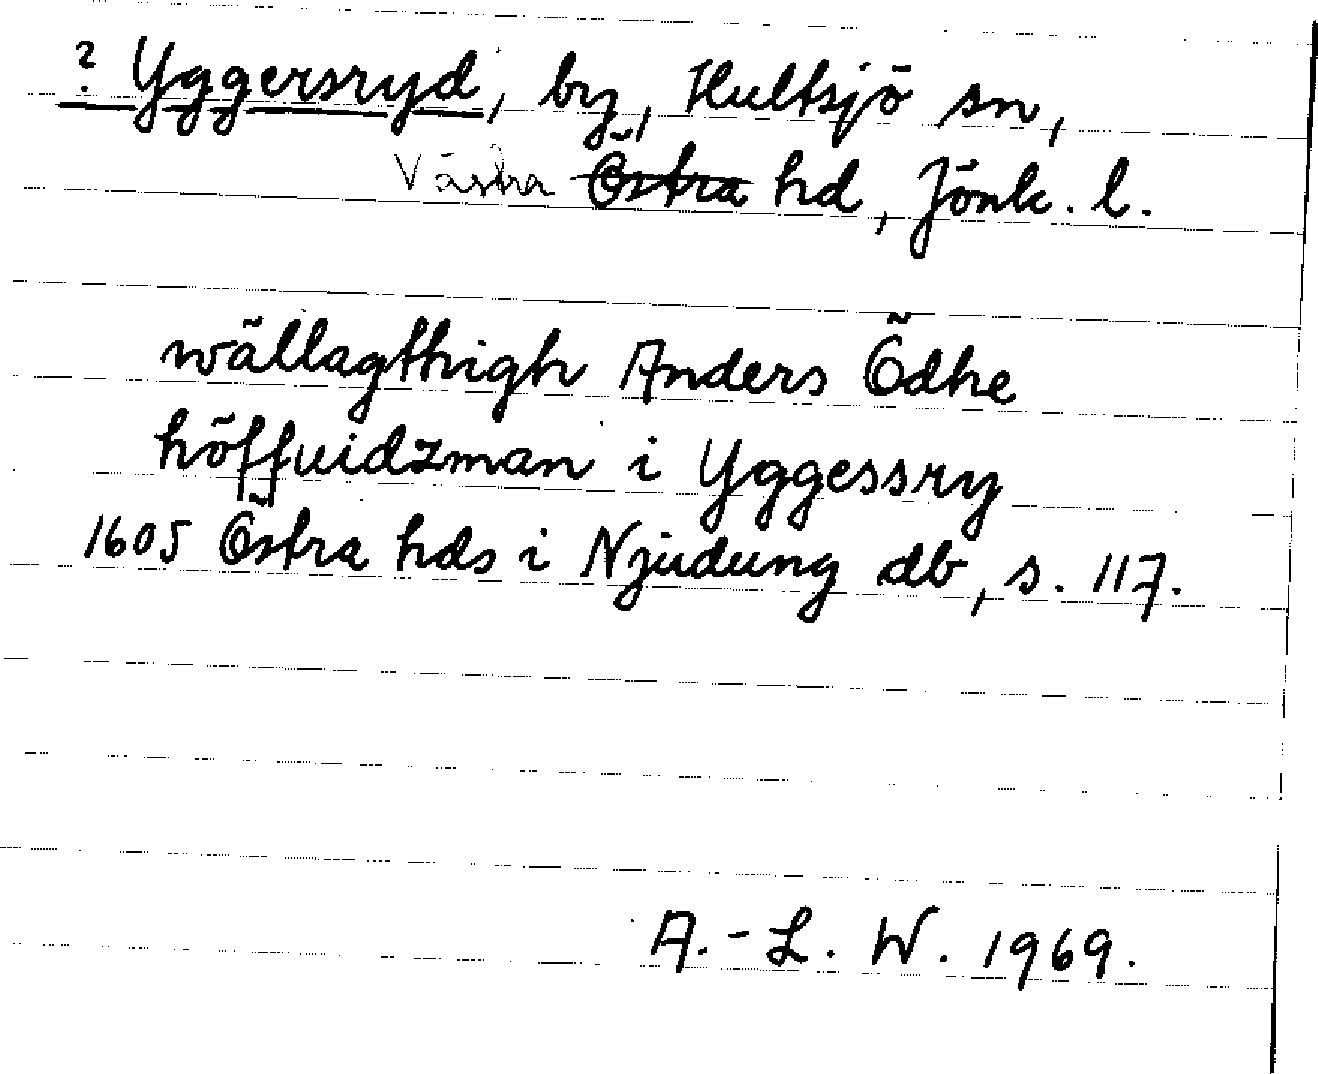 ? Yggersryd, by, Hultsjö sn,
Västra Östra hd, Jönk. l.
wällagthigh Anders Ödhe
höffuidzman i Yggessry
1605 Östra hds i Njudung db, s. 117.
A.-L. W. 1969.